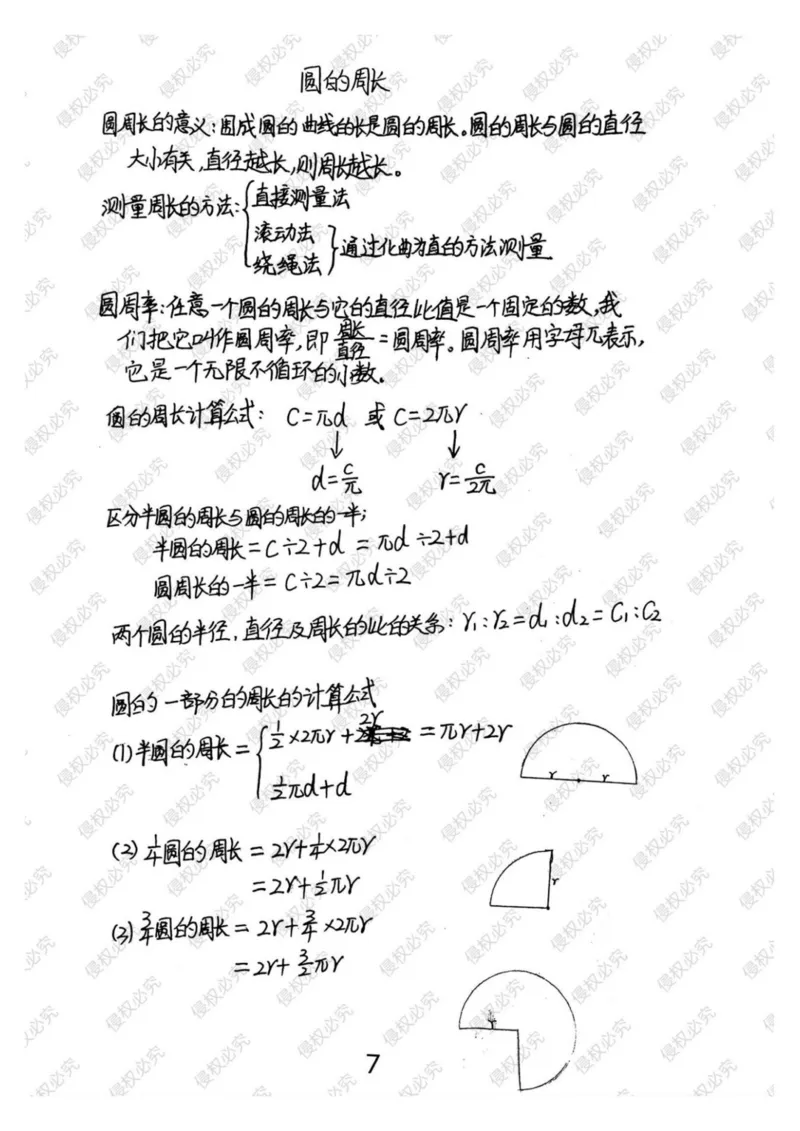 圆的周长
圆周长的意义:围成圆的曲线的长是圆的周长。圆的周长与圆的直径
大小有关,直径越长,则周长越长。
测量周长的方法:{直接测量法
滚动法
绕绳法}通过化曲为直的方法测量
圆周率:任意一个圆的周长与它的直径比值是一个固定的数,我
们把它叫作圆周率,即 周长/直径 = 圆周率。圆周率用字母π表示,
它是一个无限不循环的小数。
圆的周长计算公式: C=πd 或 C=2πr
↓ ↓
d=C/π r=C/2π
区分半圆的周长与圆的周长的一半;
半圆的周长=C÷2+d = πd÷2+d
圆周长的一半=C÷2=πd÷2
两个圆的半径,直径及周长的比的关系:r₁:r₂=d₁:d₂=C₁:C₂
圆的一部分的周长的计算公式
(1)半圆的周长={1/2×2πr+2r =πr+2r
1/2πd+d
r r
(2)1/4圆的周长=2r+1/4×2πr
=2r+1/2πr
r
(3)3/4圆的周长=2r+3/4×2πr
=2r+3/2πr
r
7
侵权必究